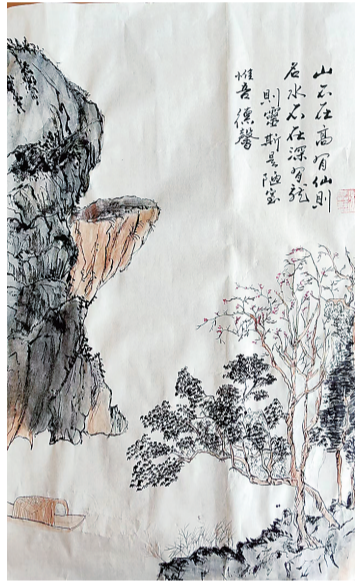 山不在高有仙则
名水不在深有龙
则灵斯是陋室
惟吾德馨